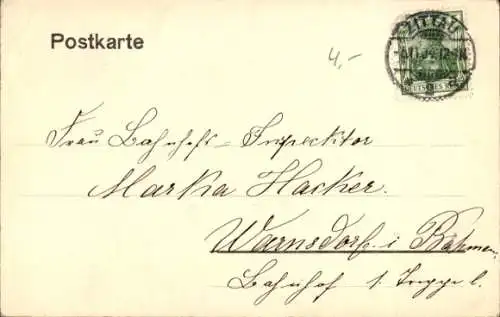 Postkarte
4,-
ZITTAU
DEUTSCHES REICH
Frau Bahnhofs-Inspecktor
Marka Hacker.
Warnsdorf i Böhmen,
Bahnhof 1. Treppe l.